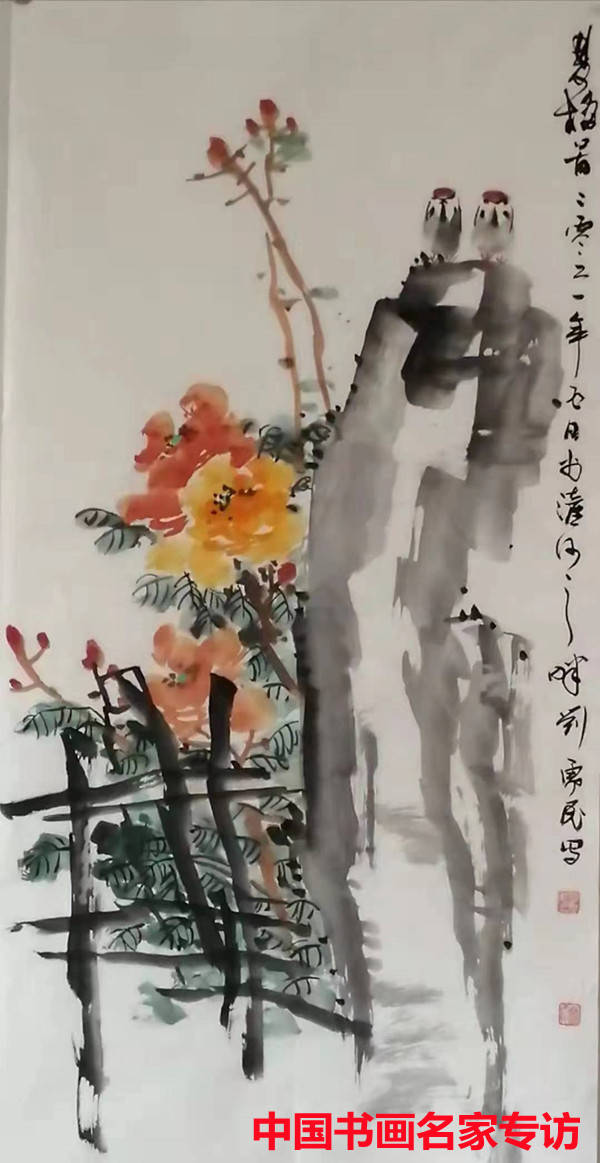 二零二一年五月于滻河之畔刘勇民写
中国书画名家专访